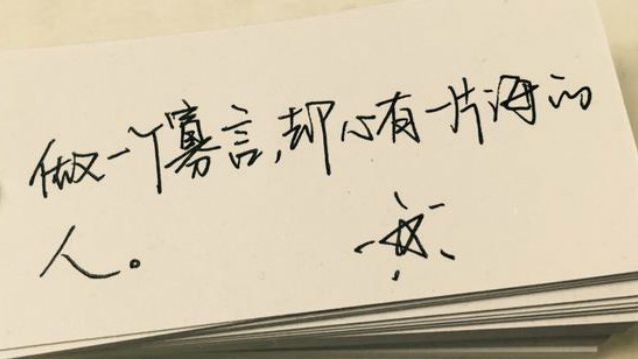 做一个寡言,却心有一片海的
人。